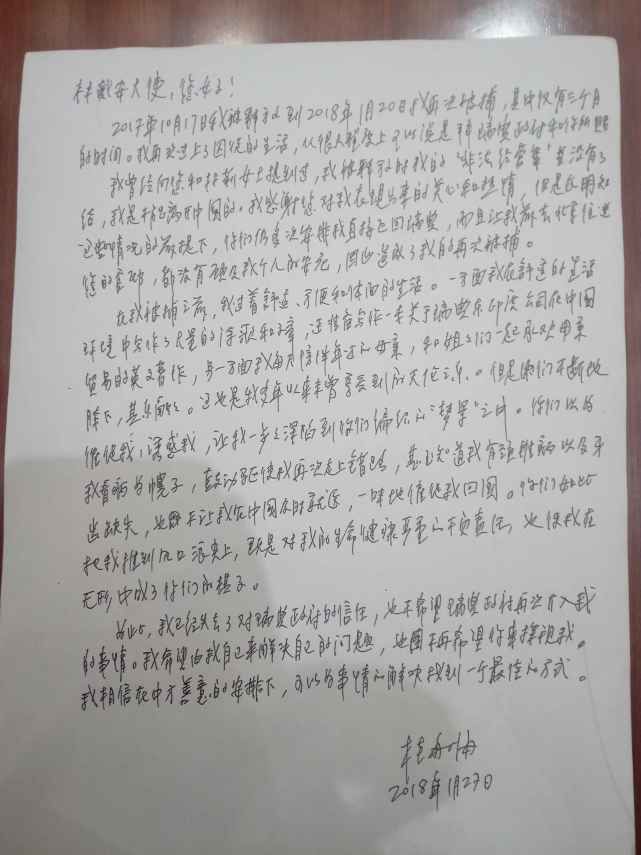 林戴安大使，您好！
2017年10月17日我被释放到2018年1月20日我再次被捕，其中仅有三个月
的时间。我再次过上了囚徒的生活，从很大程度上可以说是拜瑞典政府和你所赐
我曾经向您和 女士提到过，我被释放时我的“非法经营案”并没有了
结，我是 离开中国的。我感谢您对我表现出来的关心和热情，但是在明知
这些情况的前提下，你们仍多次安排我直接返回瑞典，而且让我前去北京住进
您的官邸，都没有顾及我个人的安危，因此造成了我的再次被捕。
在我被捕之前，我过着舒适、方便和体面的生活。一方面我在舒适的生活
环境中写作了大量的诗歌和文章，还准备写作一本关于瑞典东印度公司在中国
贸易的英文著作，另一方面我每天陪伴年迈的母亲，和姐姐们一起承欢母亲
膝下，其乐融融。这也是我 年以来未曾享受到的天伦之乐。但是你们不断地
催促我，诱惑我，让我一步步深陷到你们编织的“梦界”之中。你们以为
我看病为幌子， 促使我再次走上错路，甚至知道我有 病以及牙
齿缺失，也 不让我在中国及时就医，一味地催促我回国。你们如此
把我推到风口浪尖上，既是对我的生命健康严重的不负责任，也使我在
无形中成了你们的棋子。
为此，我已经失去了对瑞典政府的信任，也不希望瑞典政府再次介入我
的事情。我希望由我自己来解决自己的问题，也 不再希望你来探视我。
我相信在中方善意的安排下，可以为事情的解决找到一个最佳的方式。
桂敏海
2018年1月27日